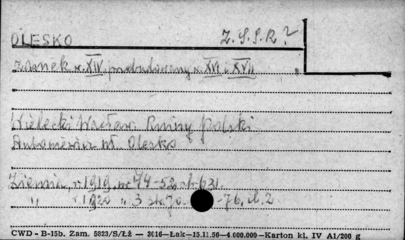 OLESKO Z.S.S.R?
Zamek w. XIV przebudowany w. XVI i XVII
Wielecki Wacław. Ruiny polski
Olesko
Ziemia, r. 1919, nr 44-52 str. 631.
" r. 1920 " 3 str. 70 -76, il. 2.
CWD - B-15b. Zam. 5823/S/Łż — 3016—Łak—15.11.56—4.000.000—Karton kl. IV A1/200 g